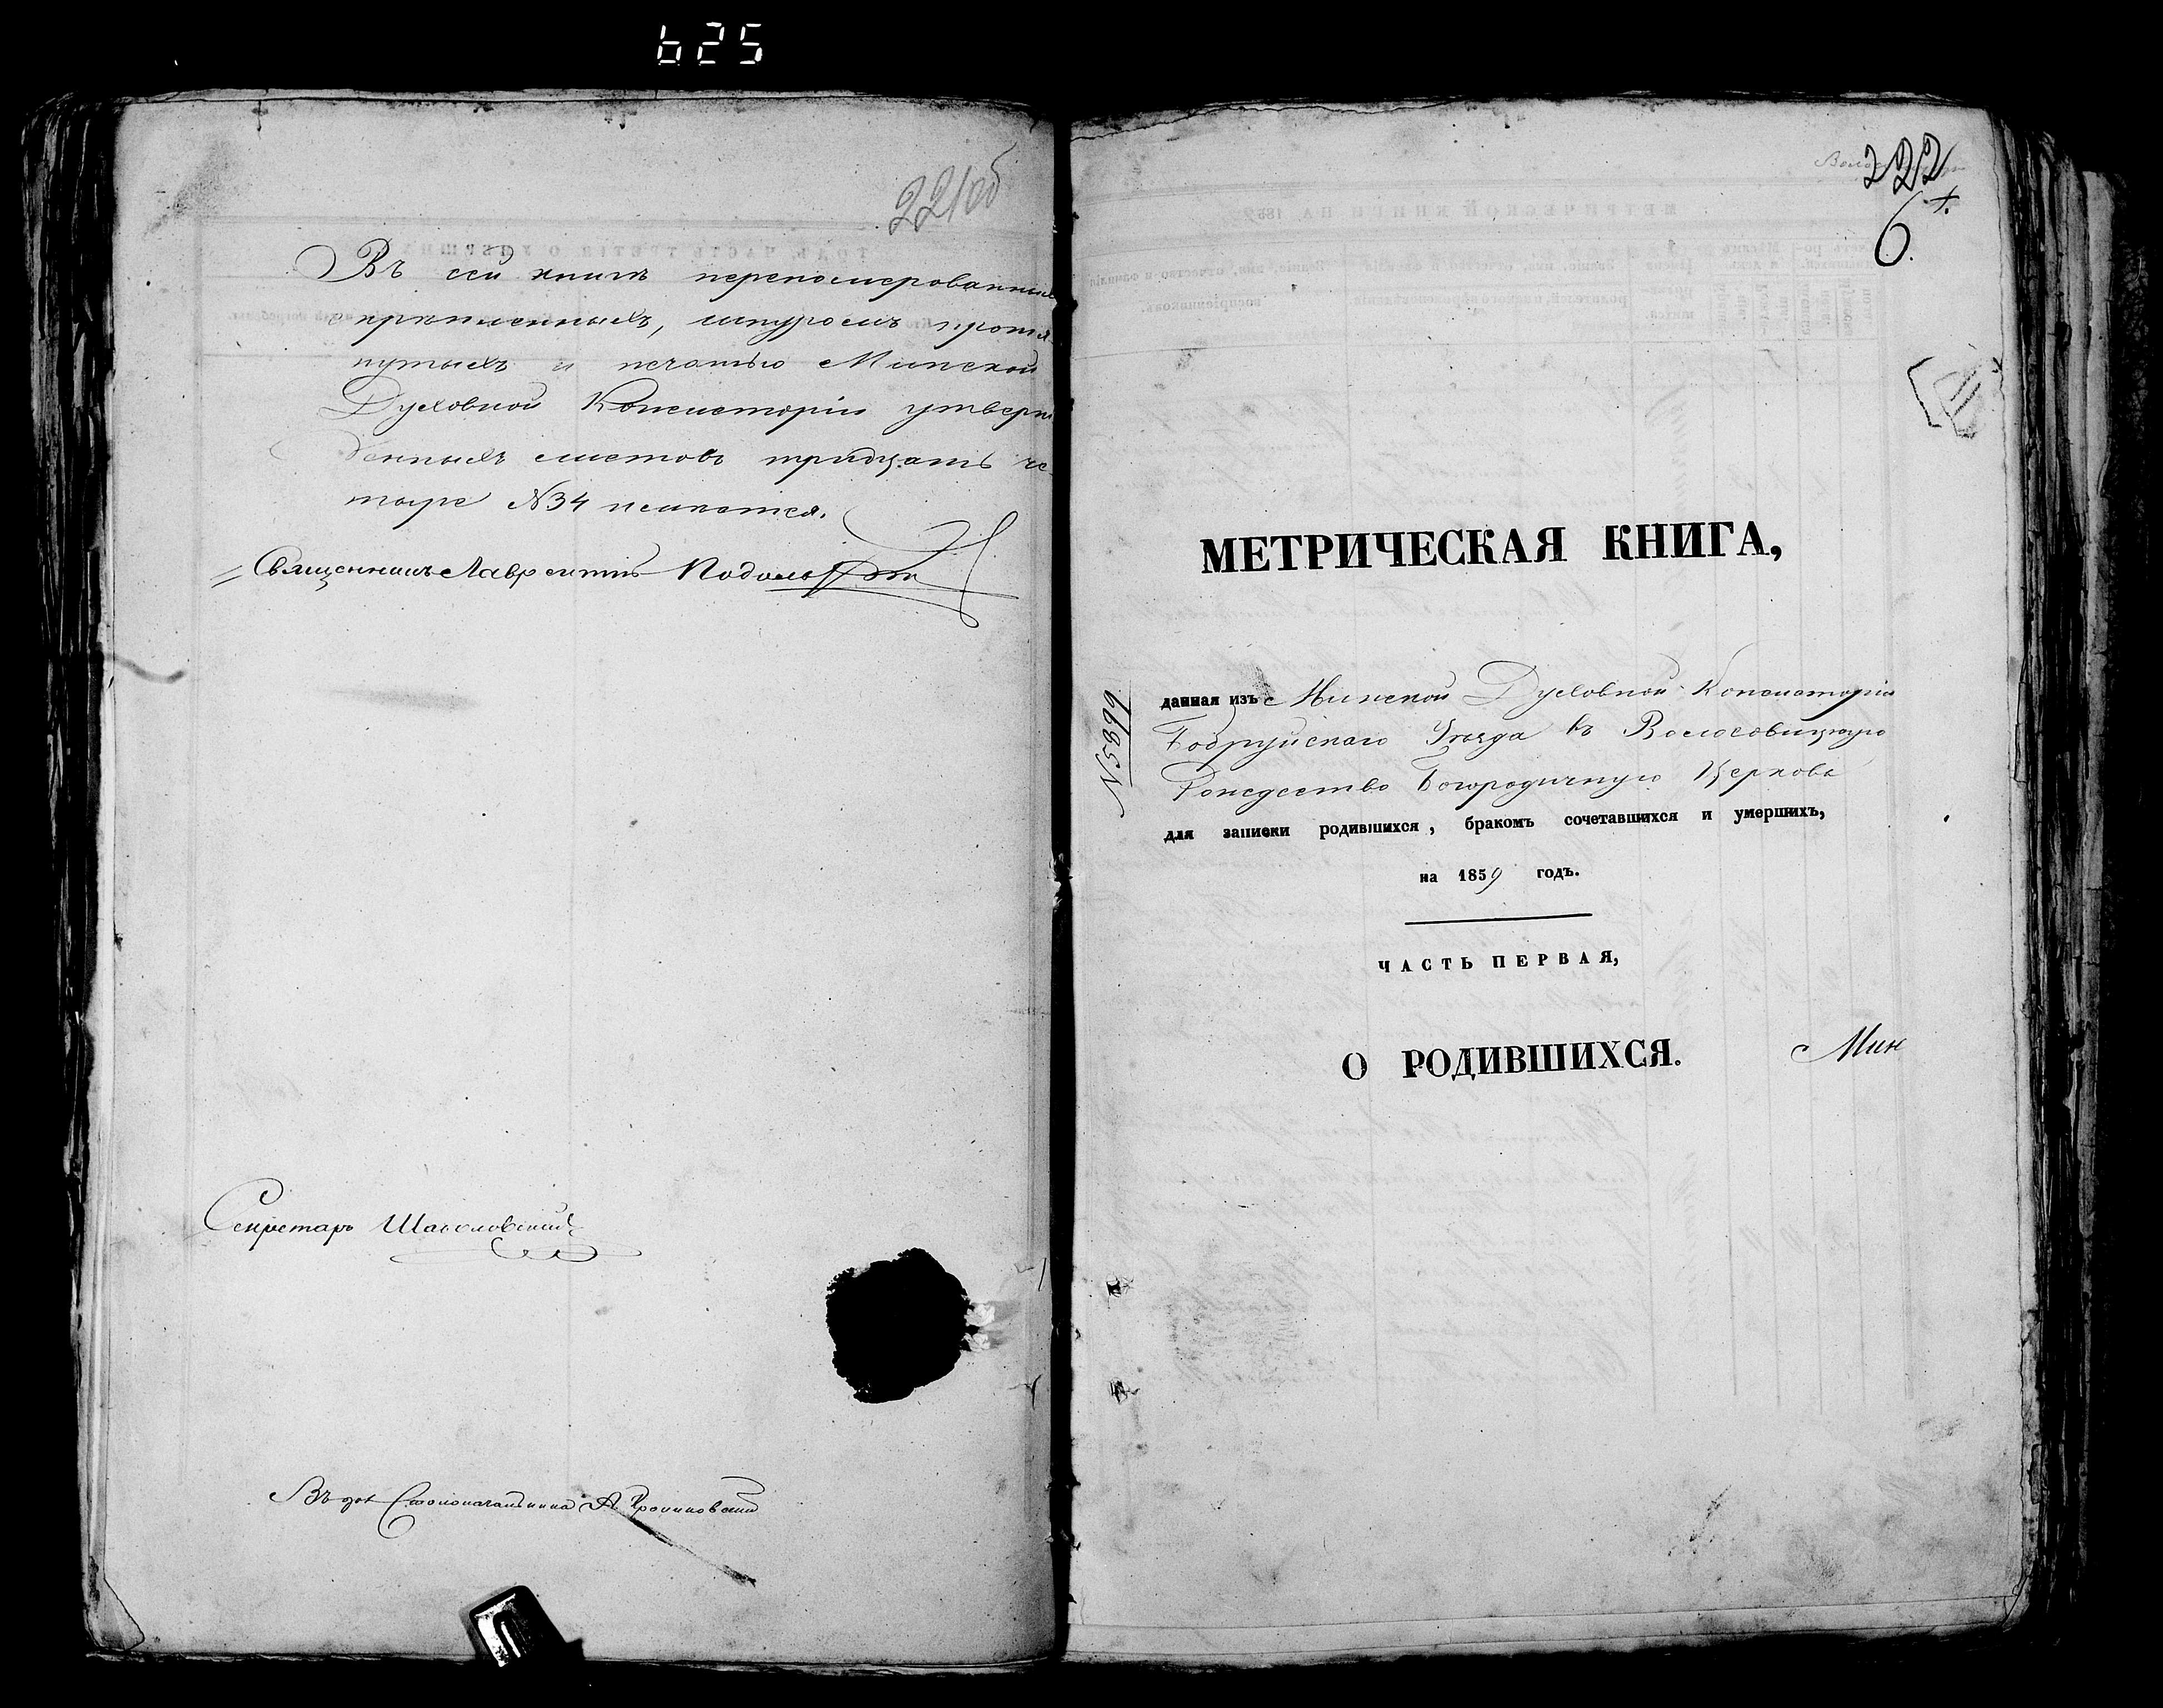 625
221об
Въ сей книгѣ перенумерованныхъ
скрѣпленныхъ, шнуромъ протя-
нутыхъ и печатью Минской
Духовной Консисторіи утверж
денныхъ листовъ тридцать че-
тыре №34 
Священникъ Лаврентій
Секретарь
Въ дол Столоначальника А
222
6.
МЕТРИЧЕСКАЯ КНИГА,
№5899
данная изъ Минской Духовной Консисторіи
Бобруйскаго Уѣзда въ Волосовицкую
Рождество Богородичную Церковь
для записки родившихся, бракомъ сочетавшихся и умершихъ,
на 1859 годъ.
ЧАСТЬ ПЕРВАЯ,
О РОДИВШИХСЯ.
Мин